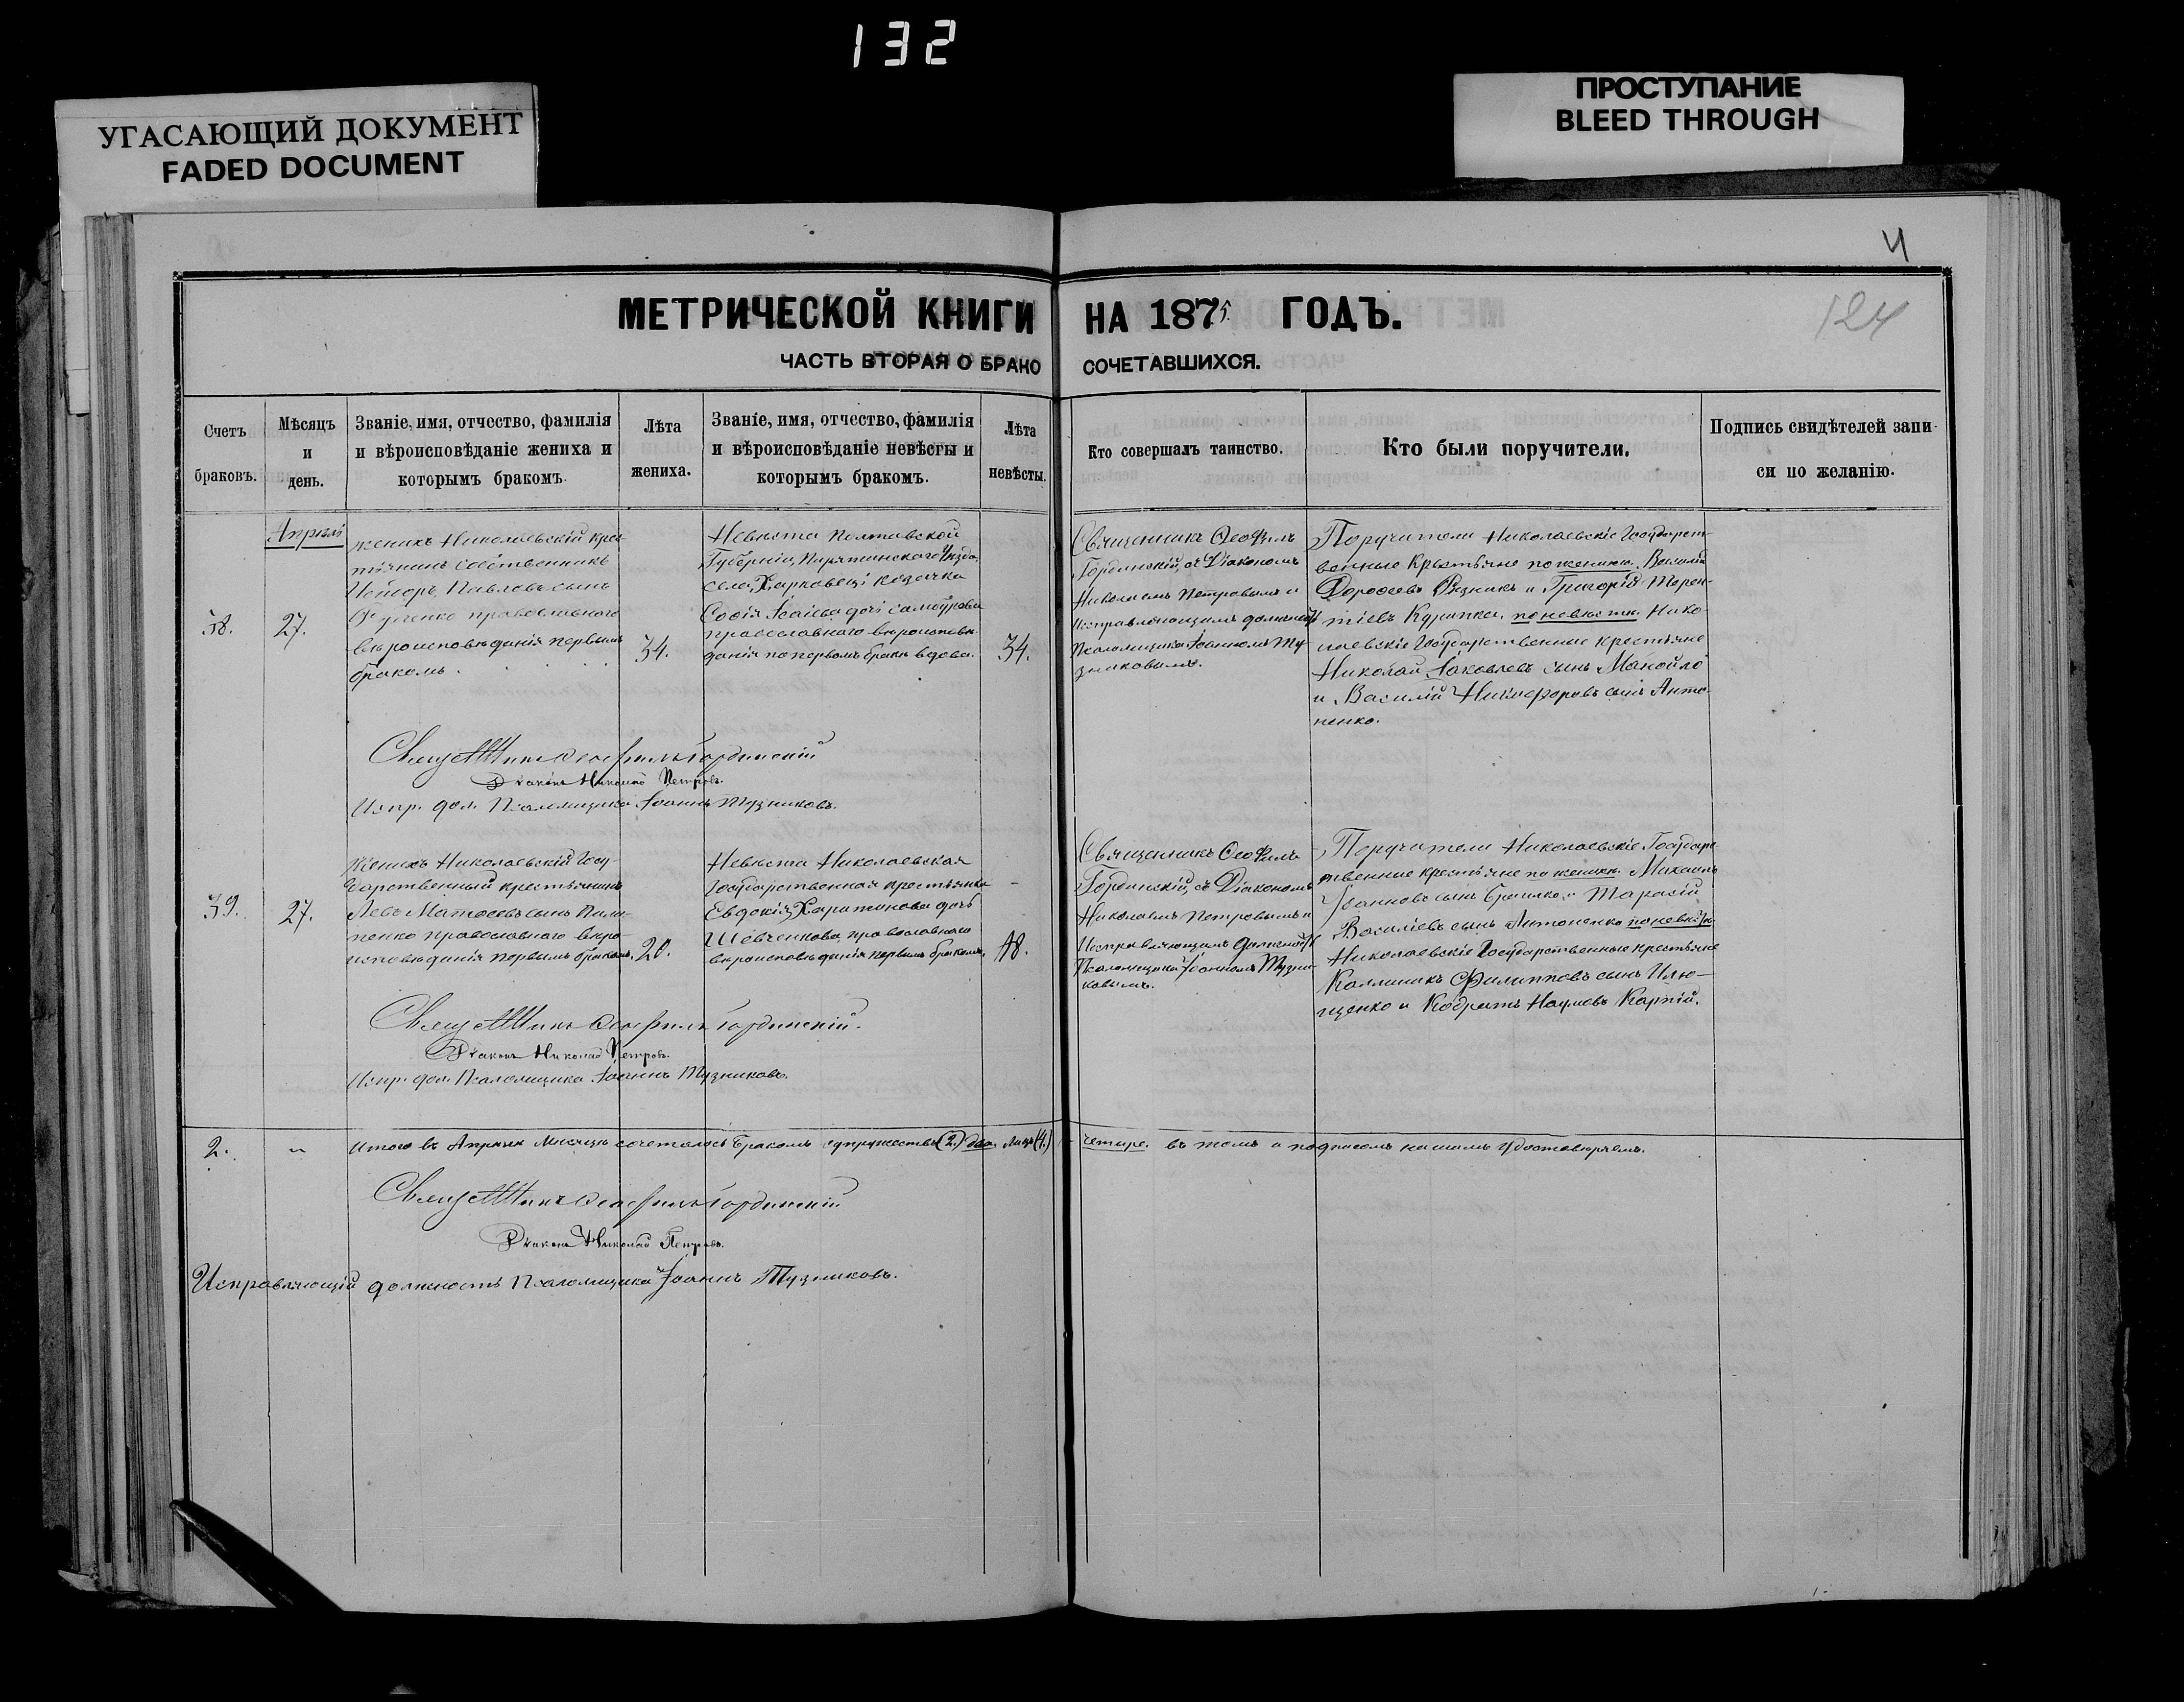 132
УГАСАЮЩИЙ ДОКУМЕНТ
FADED DOCUMENT
ПРОСТУПАНИЕ
BLEED THROUGH
4
124
МЕТРИЧЕСКОЙ КНИГИ НА 1875 ГОДЪ.
ЧАСТЬ ВТОРАЯ О БРАКОСОЧЕТАВШИХСЯ.
Счетъ
браковъ.
Мѣсяцъ
и
день.
Званіе, имя, отчество, фамилія
и вѣроисповѣданіе жениха и
которымъ бракомъ.
Лѣта
жениха.
Званіе, имя, отчество, фамилія
и вѣроисповѣданіе невѣсты и
которымъ бракомъ.
Лѣта
невѣсты.
Кто совершалъ таинство.
Кто были поручители.
Подпись свидѣтелей запи-
си по желанію.
Апрѣль
38.
27.
женихъ Николаевскій крес-
тянинъ собственникъ
Павловъ сынъ
православнаго
вѣроисповѣданія первымъ
бракомъ.
34.
Невѣста Полтавской
Губерніи, Пирятинскаго Уѣзда
села Харковец козачка
Софія дочь
православнаго вѣроисповѣ-
данія по первомъ бракѣ вдова.
34.
Священникъ Ѳеофилъ
Гординскій, съ Діакономъ
Николаемъ Петровымъ и
Исправляющимъ должность
Псаломщика Іоанномъ Ту-
зниковымъ.
Поручители Николаевскіе Государст-
венные Крестьяне по женихѣ Василій
Дороѳеевъ Рѣзникъ и Григорій Терен-
тіевъ Курипка, по невѣстѣ Нико-
лаевскіе Государственные крестьяне
Николай Яковлевъ сынъ Манойло
и Василій Никифоровъ сынъ Анто-
ненко.
Священникъ Ѳеофилъ Гординскій
Діаконъ Николай Петровъ.
Испр. дол. Псаломщика Іоаннъ Тузниковъ.
39.
27.
Женихъ Николаевскій Госу-
дарственный крестьянинъ
Левъ Матѳеевъ сынъ Пили-
пенко православнаго вѣро-
исповѣданія первымъ бракомъ.
20.
Невѣста Николаевская
Государственная крестьянка
Евдокія Харитонова дочь
Шевченкова православнаго
вѣроисповѣданія первымъ бракомъ.
18.
Священникъ Ѳеофилъ
Гординскій, съ Діакономъ
Николаемъ Петровымъ и
Исправляющимъ должность
Псаломщика Іоанномъ Тузни-
ковымъ.
Поручители Николаевскіе Государс-
твенные крестьяне по женихѣ Михаилъ
Іоанновъ сынъ и Тарасій
Василіевъ сынъ Антоненко по невѣстѣ
Николаевскіе Государственные крестьяне
Каллиникъ Филипповъ сынъ Илю-
щенко и Кодратъ Наумовъ Карпій.
Священникъ Ѳеофилъ Гординскій.
Діаконъ Николай Петровъ.
Испр. дол. Псаломщика Іоаннъ Тузниковъ.
2.
"
Итого въ Апрѣлѣ Мѣсяцѣ сочеталось бракомъ супружествъ (2.) два, лицъ (4.) четыре. въ томъ и подписомъ нашимъ удостовѣряемъ.
Священникъ Ѳеофилъ Гординскій
Діаконъ Николай Петровъ.
Исправляющій должность Псаломщика Іоаннъ Тузниковъ.